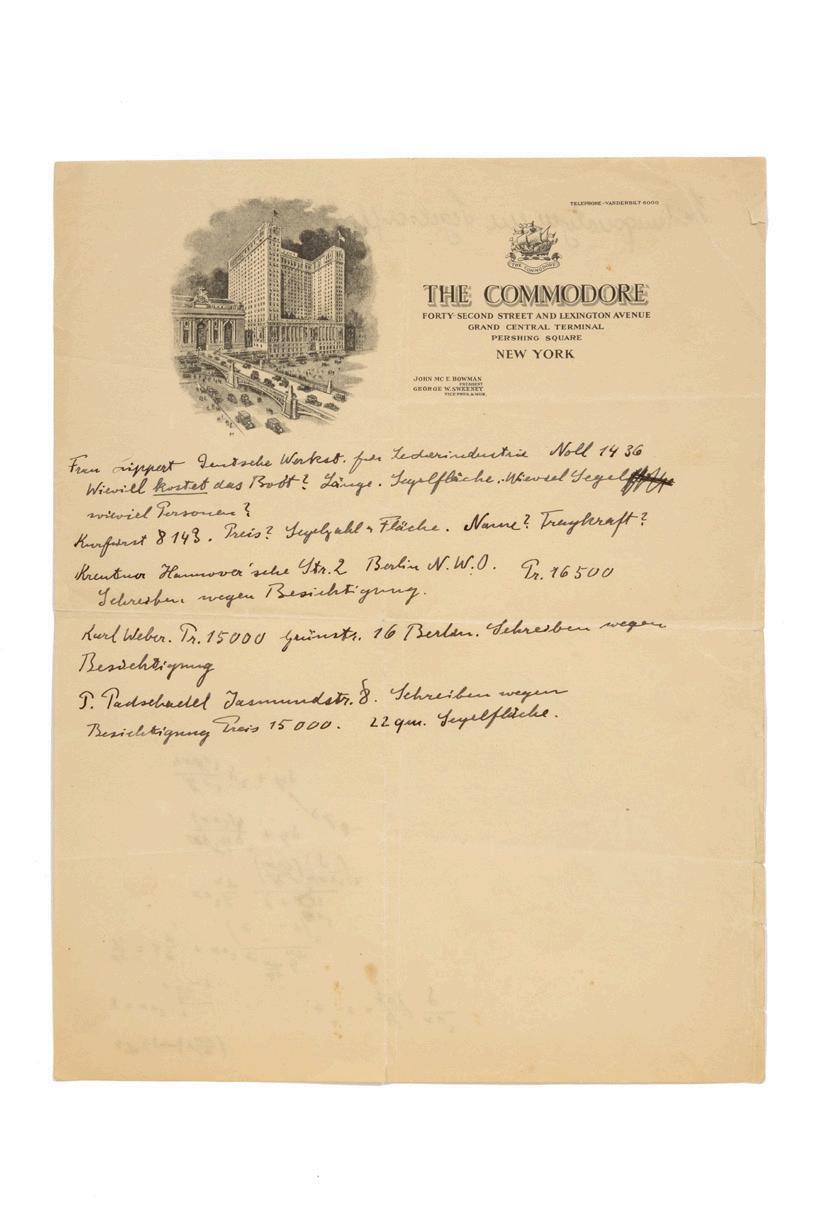 TELEPHONE-VANDERBILT 6000
THE COMMODORE
THE COMMODORE
FORTY-SECOND STREET AND LEXINGTON AVENUE
GRAND CENTRAL TERMINAL
PERSHING SQUARE
NEW YORK
JOHN MC E. BOWMAN
PRESIDENT
GEORGE W. SWEENEY
VICE PRES. & MGR.
Frau Lippert Deutsche Werkst. für Lederindustrie Noll 1436
Wieviel kostet das Boot? Länge. Segelfläche. Wieviel Segel
wieviel Personen?
Kurfürst 8143. Preis? Segelzahl u Fläche. Name? Tragkraft?
Hannover'sche Str. 2 Berlin N.W.O. Pr. 16500
Schreiben wegen Besichtigung.
Karl Weber. Pr. 15000 Grünstr. 16 Berlin. Schreiben wegen
Besichtigung
P. Jasmundstr. 8. Schreiben wegen
Besichtigung Preis 15000. 22 qm. Segelfläche.